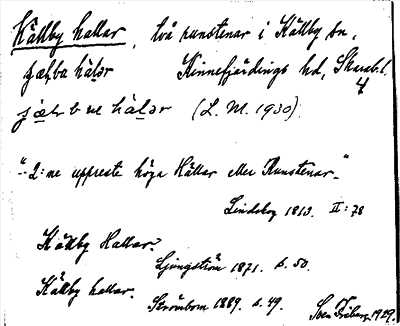 Källby hallar, två runstenar i Källby sn,
Kinnefjärdings hd, Skarab.l.
4
(L. M. 1930).
"- 2:ne uppreste höga Hällar eller Runstenar.-"
Lindskog 1813. II: 78
Källby Hallar.
Ljungström 1871. s. 50.
Källby hallar.
Strömbom 1889. s. 49.
Sven Friberg. 1929.